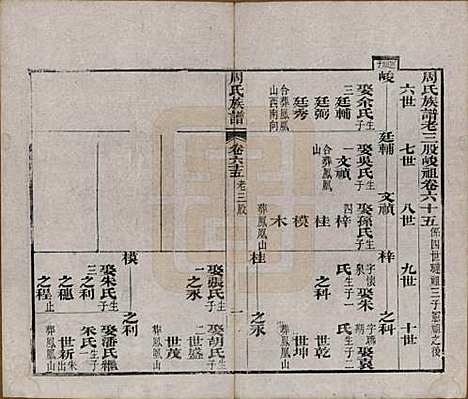 周氏族譜老三股峻祖卷六十五
六世 七世 八世 九世 十世
峻 廷輔 文禎 梓 之科
娶余氏生
三子
廷輔
廷弼
廷秀
合葬鳳凰
山西南向
娶吳氏生
一子
文禎
合葬鳳凰
山
娶孫氏生
四子
梓
桂
模
木
葬鳳凰山
字懷
娶朱
氏生
一子
之科
娶袁
氏生
二子
世乾
世坤
葬鳳凰山
桂 之永
周氏族譜
卷六十五
老三股
一
娶張氏生
一子
之永
娶胡氏生
二子
世盛
世茂
葬鳳凰山
模 之利
娶朱氏生
三子
之利
之穗
之程止
娶潘氏繼
朱氏生
一子
世新出朱
葬鳳凰山